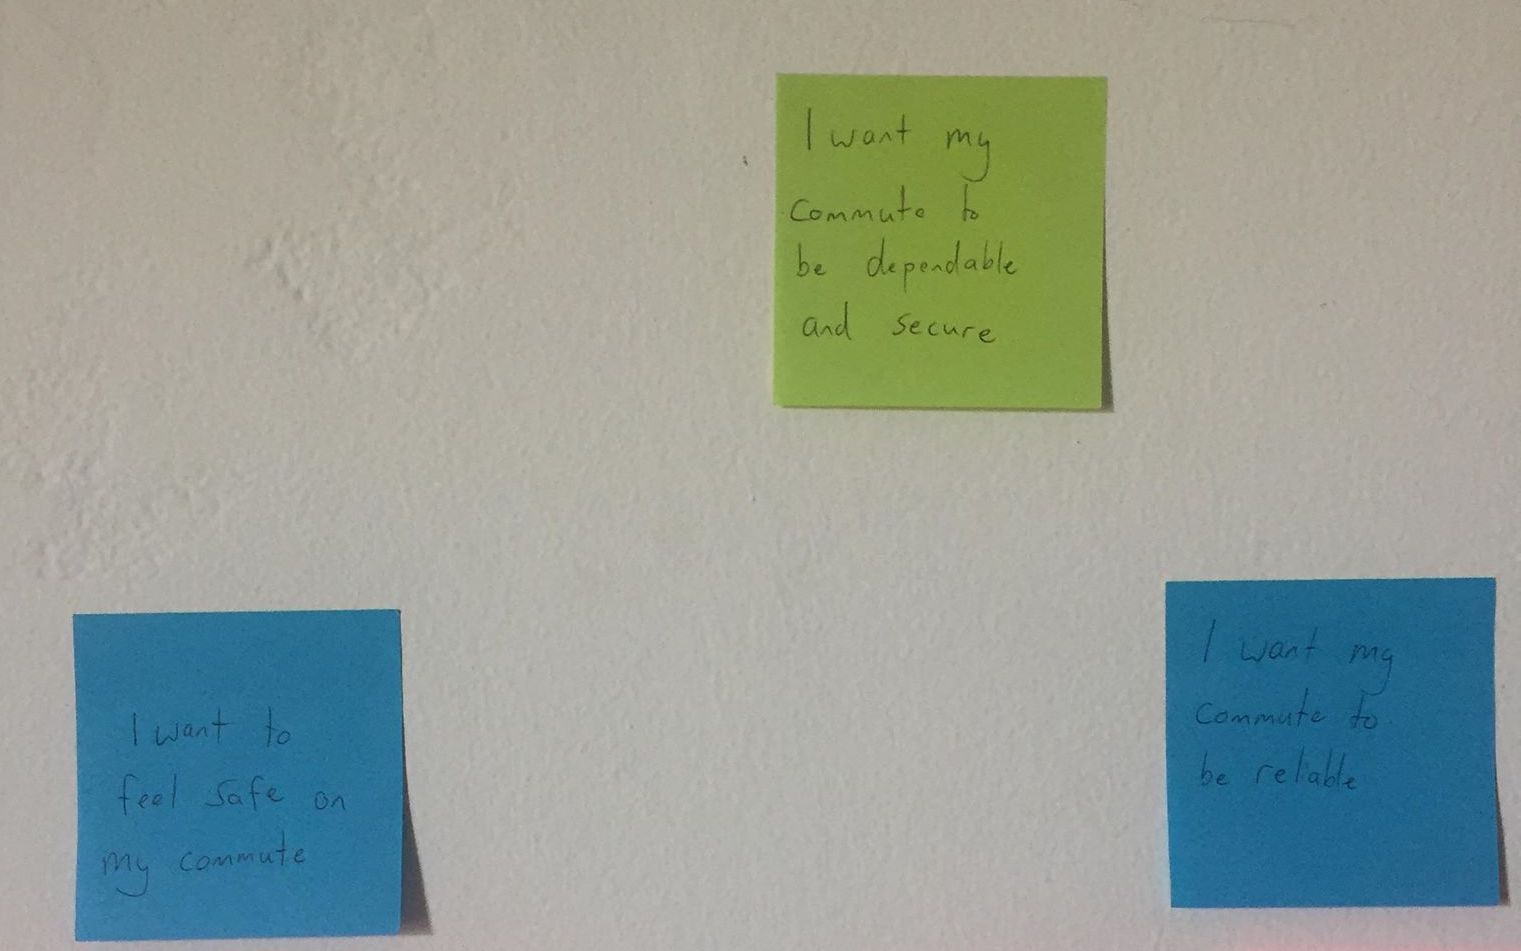 I want my
commute to
be dependable
and secure
I want to
feel safe on
my commute
I want my
commute to
be reliable